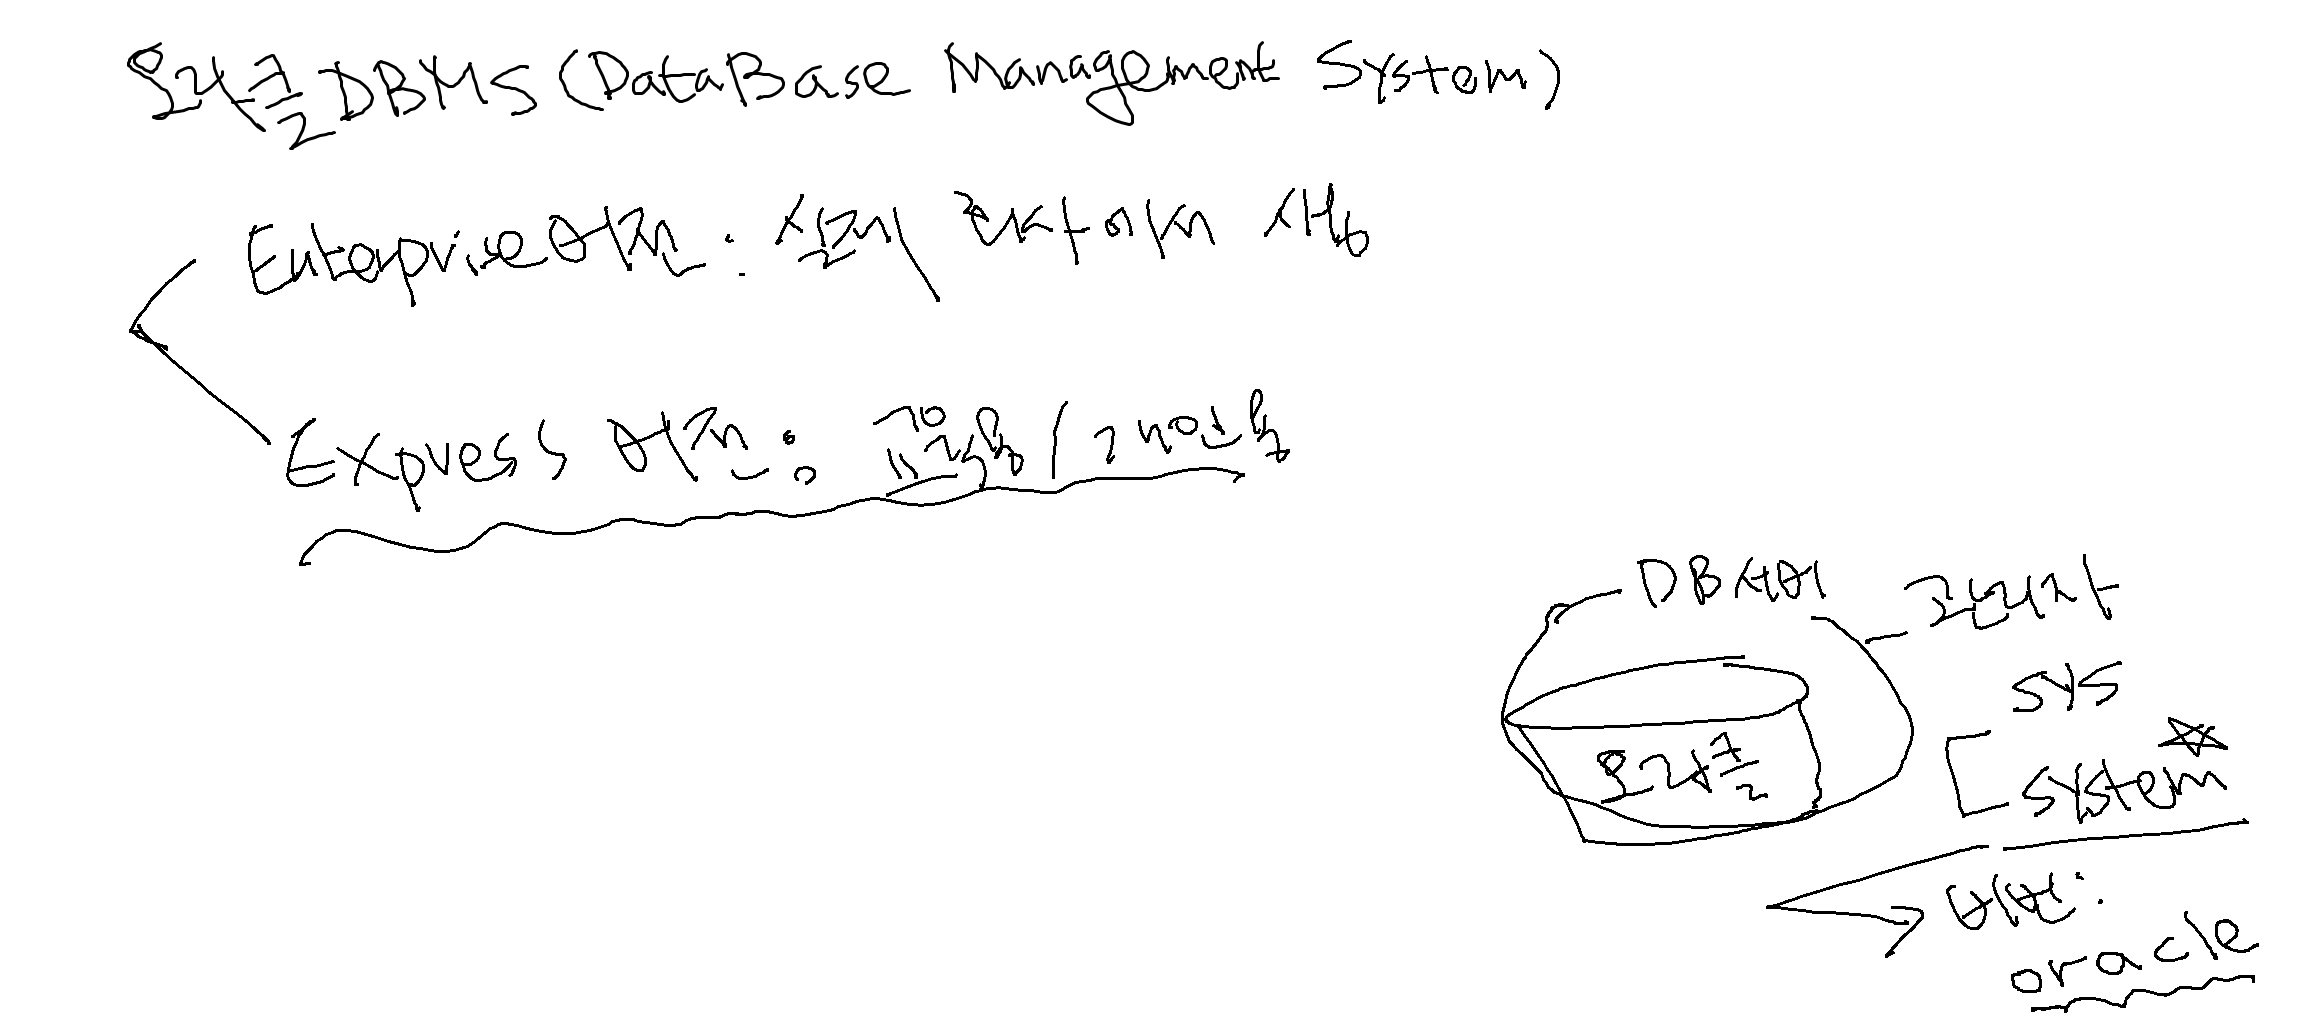 오라클 DBMS (DataBase Management System)
Enterprise 버전 : 실제 회사에서 사용
Express 버전 : 교육용 / 개인용
DB서버
관리자
sys
오라클
system
비번 :
oracle